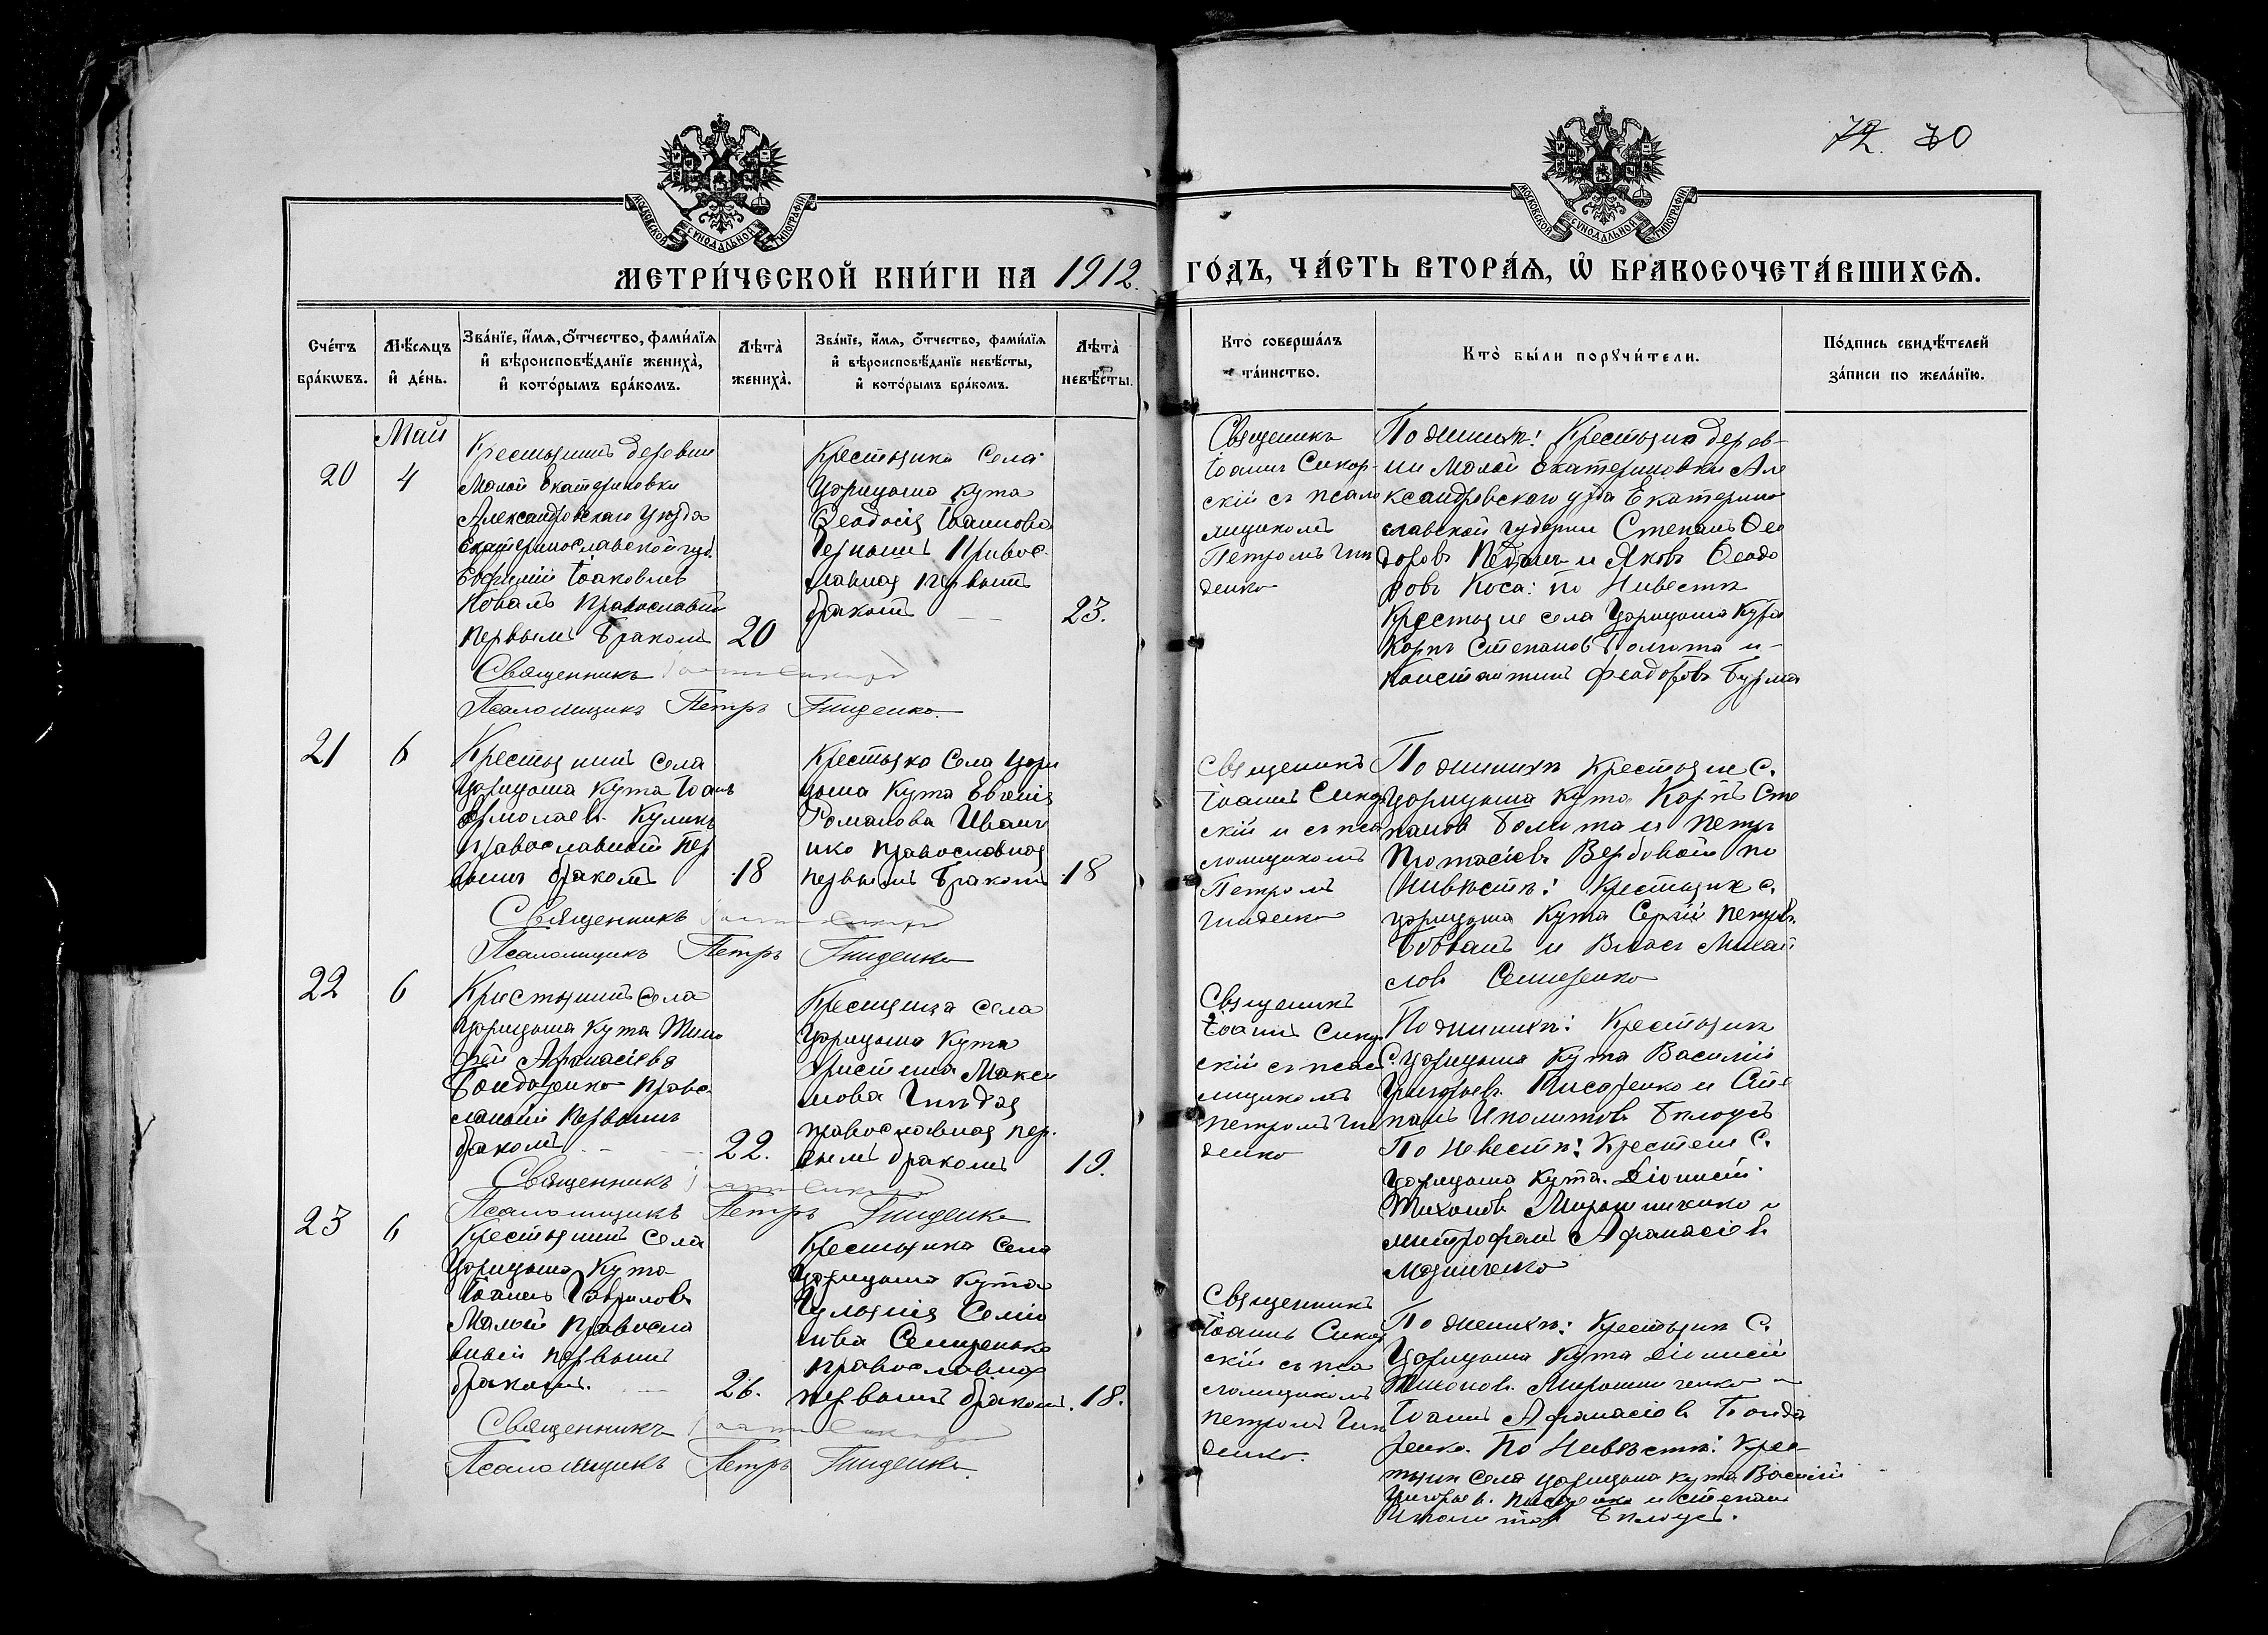 72. 70
МОСКОВСКОЙ СУНОДАЛЬНОЙ ТИПОГРАФІИ
МОСКОВСКОЙ СУНОДАЛЬНОЙ ТИПОГРАФІИ
МЕТРИ́ЧЕСКОЙ КНИ́ГИ НА 1912. ГО́ДЪ, ЧА́СТЬ ВТОРА́Я, Ѡ҆ БРАКОСОЧЕТА́ВШИХСЯ.
Сче́тъ бра́кѡвъ.
Мѣ́сяцъ и҆ де́нь.
Зва́нїе, и҆́мя, ѻ҆́тчество, фами́лїя и҆ вѣроисповѣ́данїе жениха̀, и҆ кото́рымъ бра́комъ.
Лѣта̀ жениха̀.
Зва́нїе, и҆́мя, ѻ҆́тчество, фами́лїя и҆ вѣроисповѣ́данїе невѣ́сты, и҆ кото́рымъ бра́комъ.
Лѣта̀ невѣ́сты.
Кто̀ соверша́лъ та́инство.
Кто̀ бы́ли порꙋчи́тели.
По́дпись свидѣ́телей за́писи по жела́нїю.
Май
20
4
Крестьянинъ деревни
Малой Екатериновки
Александровскаго уѣзда
Екатеринославской губ.
Евфимій Іаковлевъ
Коваль Православный
первымъ бракомъ
20
Крестьянка Села
Царицына Кута
Ѳеодосія Іоаннова
Черныш Правос
лавная первымъ
бракомъ
23.
Священникъ
Іоаннъ Сикор
скій съ псало
мщикомъ
Петромъ Гни
денко
По жениху: Крестьяне дерев
ни Малой Екатериновки Але
ксандровскаго уѣзда Екатерино
славской губерніи Степанъ Ѳео
доровъ Педань и Яковъ Ѳеодо
ровъ Коса: по Невестѣ
Крестьяне села Царицына Кута
Карпъ Степановъ Болюта и
Константинъ Феодоровъ Бурма
Священникъ
Псаломщикъ Петръ Гниденко.
21
6
Крестьянинъ Села
Царицына Кута Іоанъ
Ермолаевъ Куликъ
православный пер
вымъ бракомъ
18
Крестьянка Села Цари
цына Кута Евгенія
Романова Иванч
нко православная
первымъ бракомъ
18
Священникъ
Іоаннъ Сикор
скій и съ пса
ломщикомъ
Петромъ
Гниденко
По жениху Крестьяне С.
Царицына Кута Карпъ Сте
пановъ Болюта и Петръ
Протасіевъ Вербовой по
Невѣстѣ: Крестьяне с.
Царицына Кута Сергій Петровъ
Бовванъ и Власъ Михай
ловъ Семеренко
Священникъ
Псаломщикъ Петръ Гниденко
22
6
Крестьянинъ села
Царицына Кута Тимо
фей Афанасіевъ
Бондаренко Право
славный первымъ
бракомъ
22.
Крестьянка села
Царицына Кута
Христина Макси
мова Гнидая
православная пер
вымъ бракомъ
19.
Священникъ
Іоаннъ Сикор
скій съ псало
мщикомъ
Петромъ Гни
денко
По жениху: Крестьяне
С. Царицына Кута Василій
Григорьевъ Писаренко и Сте
панъ Иполитовъ Билоусъ
По Невестѣ: Крестяне С.
Царицына Кута Діонисій
Тихоновъ Мирошниченко и
Митрофанъ Афанасіевъ
Мазниченко
Священникъ
Псаломщикъ Петръ Гниденко
23
6
Крестьянинъ Села
Царицына Кута
Іоаннъ Гавриловъ
Малый Правосла
вный первымъ
бракомъ.
26.
Крестьянка Села
Царицына Кута
Іульянія Семіо
нова Семиренько
православная
первымъ бракомъ.
18.
Священникъ
Іоаннъ Сикор
скій съ пса
ломщикомъ
Петромъ Гни
денко.
По жениху: Крестьяне С.
Царицына Кута Діонисій
Тихоновъ Мирошниченко и
Іоаннъ Афанасіевъ Бонда
ренко. По Невѣстѣ: Крес
тьяне Села Царицына Кута Василій
Григорьевъ Писаренко и Степанъ
Иполитовъ Билоусъ.
Священникъ
Псаломщикъ Петръ Гниденко.